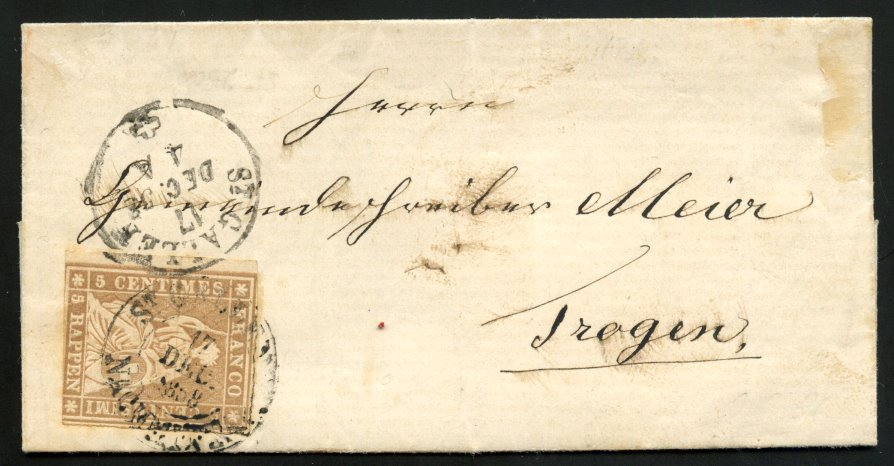 Herrn
Gemeindeschreiber Meier
Trogen,
ST. GALLEN
17
DEC.
4 A
5 CENTIMES
FRANCO
CENTIMI
5 RAPPEN
ST. GALLEN
17
DEC.
1858